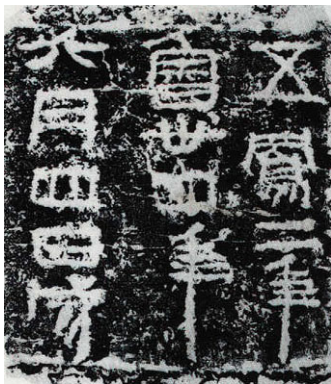 五鳳二年
魯卅四年
六月四日成